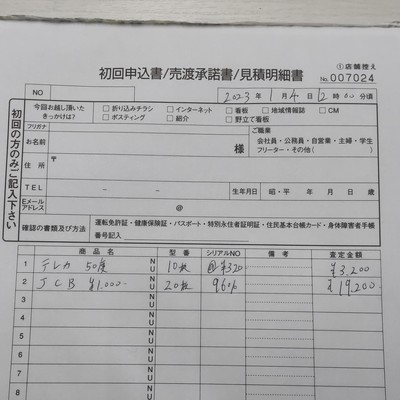 ①店舗控え
初回申込書/売渡承諾書/見積明細書
No. 007024
NO
2023年 1月 4日 12時00分頃
初回の方のみご記入下さい
今回お越し頂いた きっかけは? □折り込みチラシ □インターネット □看板 □地域情報誌 □CM
□ポスティング □紹介 □野立て看板
フリガナ
お名前 様
ご職業
会社員・公務員・自営業・主婦・学生
フリーター・その他( )
住所 〒
TEL ー ー 生年月日 昭・平 年 月 日 歳
Eメール アドレス @
確認の書類及び方法 運転免許証・健康保険証・パスポート・特別永住者証明証・住民基本台帳カード・身体障害者手帳
番号記入
商品名 型番 シリアルNO 備考 査定金額
1 テレカ 50度 N U 10枚 ¥320 ¥3,200
2 JCB ¥1,000- N U 20枚 96% ¥19,200
3 N U
4 N U
5 N U
6 N U
7 N U
8 N U